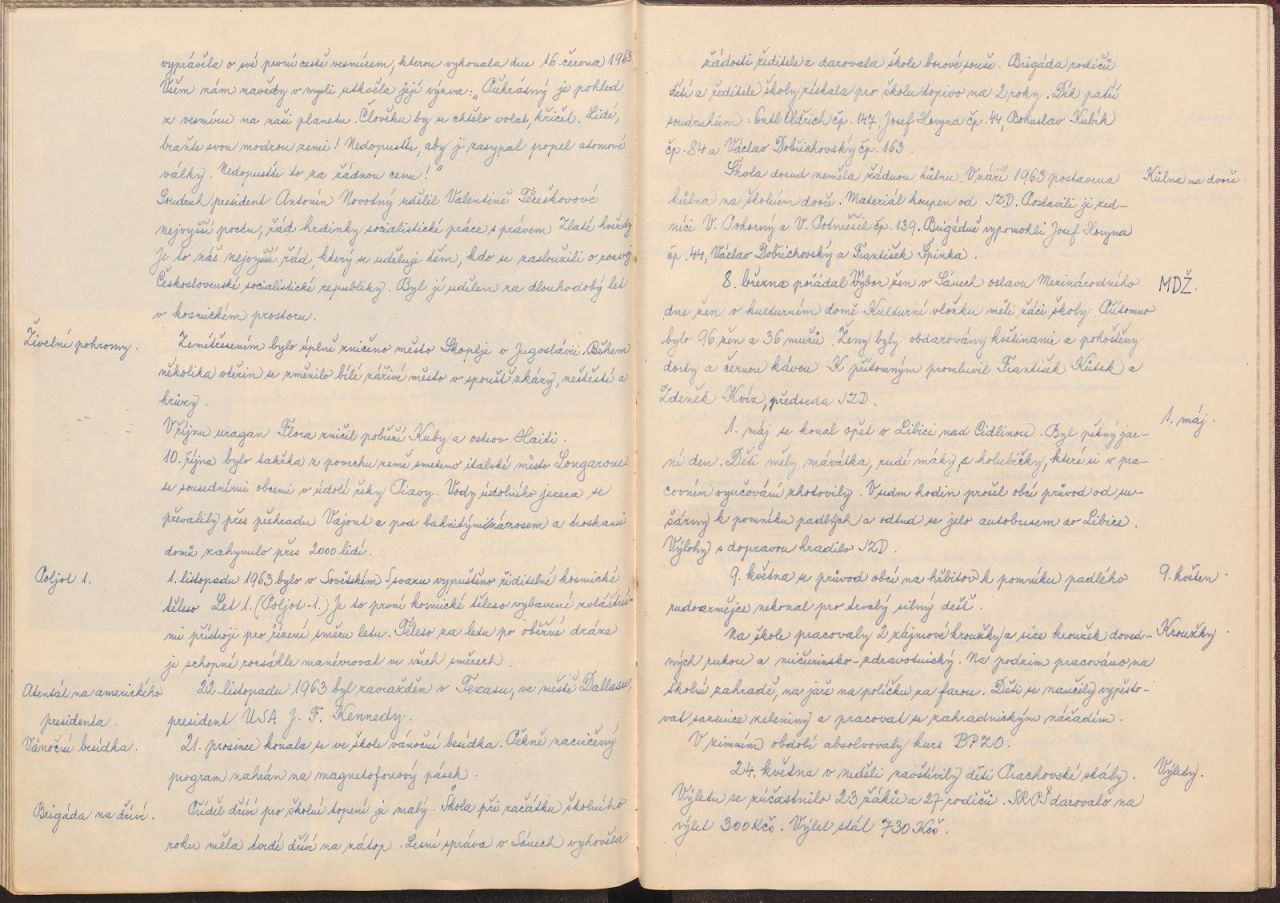 vyprávěla o své první cestě vesmírem, kterou vykonala dne 16. června 1963.
Všem nám navždy v mysli utkvěla její výzva: „Překrásný je pohled
z vesmíru na naši planetu. Člověku by se chtělo volat, křičet. Lidé,
braňte svou modrou zemi! Nedopusťte, aby ji zasypal popel atomové
války. Nedopusťte to za žádnou cenu!"
Soudruh president Antonín Novotný udělil Valentině Těreškovové
nejvyšší poctu, řád hrdinky socialistické práce s právem Zlaté hvězdy
Je to náš nejvyšší řád, který se uděluje těm, kdo se zasloužili o rozvoj
Československé socialistické republiky. Byl jí udělen za dlouhodobý let
v kosmickém prostoru.
Živelní pohromy.
Zemětřesením bylo úplně zničeno město Skoplje v Jugoslávii. Během
několika vteřin se změnilo bílé zářivé město v spoušť zkázy, neštěstí a
hrůzy.
V říjnu uragan Flora zničil pobřeží Kuby a ostrov Haiti.
10. října bylo takřka z povrchu země smeteno italské město Longarone
se sousedními obcemi v údolí řeky Piavy. Vody údolního jezera se
převalily přes přehradu Vajont a pod bahnitými nánosem a troskami
domů zahynulo přes 2000 lidí.
Poljot 1.
1. listopadu 1963 bylo v Sovětském Svazu vypuštěno řiditelné kosmické
těleso Let 1. (Poljot-1.) Je to první kosmické těleso vybavené zvláštní-
mi přístroji pro řízení směru letu. Těleso za letu po oběžné dráze
je schopné rozsáhle manévrovat ve všech směrech.
Atentát na amerického
presidenta.
22. listopadu 1963 byl zavražděn v Texasu, ve městě Dallasu,
president USA J. F. Kennedy.
Vánoční besídka.
21. prosince konala se ve škole vánoční besídka. Pěkně nacvičený
program nahrán na magnetofonový pásek.
Brigáda na dříví.
Příděl dříví pro školní topení je malý. Škola při začátku školního
roku měla tvrdé dříví na zátop. Lesní správa v Sánech vyhověla
žádosti ředitele a darovala škole borové souše. Brigáda rodičů
dětí a ředitele školy získala pro školu topivo na 2 roky. Dík patří
soudruhům: Entl Oldřich čp. 147, Josef Horyna čp. 44, Bohuslav Kubík
čp. 84 a Václav Dobřichovský čp. 163.
Kůlna na dvoře.
Škola dosud neměla žádnou kůlnu. V září 1963 postavena
kůlna na školním dvoře. Materiál koupen od JZD. Postavili ji zed-
níci V. Pokorný a V. Posměšil čp. 139. Brigádně vypomohli Josef Horyna
čp. 44, Václav Dobřichovský a František Špinka.
MDŽ.
8. března pořádal Výbor žen v Sánech oslavu Mezinárodního
dne žen v kulturním domě. Kulturní vložku měli žáci školy. Přítomno
bylo 96 žen a 36 mužů. Ženy byly obdarovány květinami a pohoštěny
dorty a černou kávou. K přítomným promluvil František Kůtek a
Zdeněk Kvíz, předseda JZD.
1. máj.
1. máj se konal opět v Libici nad Cidlinou. Byl pěkný jar-
ní den. Děti měly mávátka, rudé máky, a holubičky, které si v pra-
covním vyučování zhotovily. V sedm hodin prošel obcí průvod od su-
šárny k pomníku padlých a odtud se jelo autobusem do Libice.
Výlohy s dopravou hradilo JZD.
9. květen
9. května se průvod obcí na hřbitov k pomníku padlého
rudoarmějce nekonal pro trvalý silný déšť.
Kroužky.
Na škole pracovaly 2 zájmové kroužky a sice kroužek doved-
ných rukou a mičurinsko-zdravotnický. Na podzim pracováno na
školní zahradě, na jaře na políčku za farou. Děti se naučily vypěsto-
vat sazenice zeleniny a pracovat se zahradnickým nářadím.
V zimním období absolvovaly kurs BPZO.
Výlety.
24. května v neděli navštívily děti Prachovské skály.
Výletu se zúčastnilo 23 žáků a 27 rodičů. SRPŠ darovalo na
výlet 300 Kčs. Výlet stál 730 Kčs.